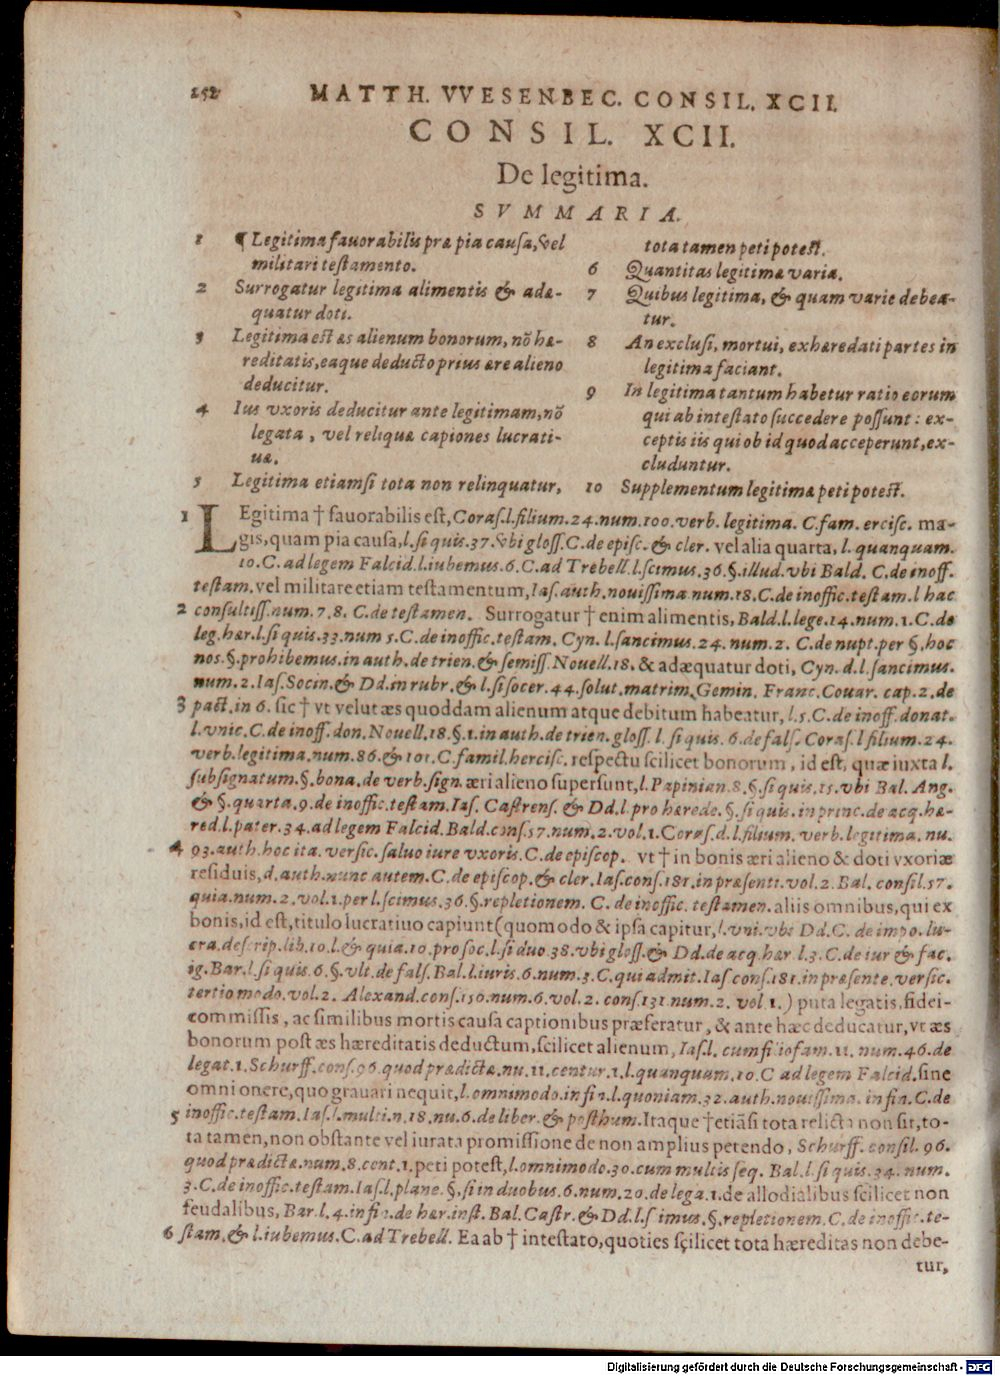 252 MATTH. VVESENBEC. CONSIL. XCII.
CONSIL. XCII.
De legitima.
SVMMARIA.
1 ¶ Legitima fauorabilis præ pia causa, vel
militari testamento.
2 Surrogatur legitima alimentis & adæ-
quatur doti.
3 Legitima est æs alienum bonorum, nō hæ-
reditatis, eaque deducto prius ære alieno
deducitur.
4 Ius vxoris deducitur ante legitimam, nō
legata, vel reliquæ capiones lucrati-
uæ.
5 Legitima etiamsi tota non relinquatur,
tota tamen peti potest.
6 Quantitas legitimæ varia.
7 Quibus legitima, & quam varie debea-
tur.
8 An exclusi, mortui, exhæredati partes in
legitima faciant.
9 In legitima tantum habetur ratio eorum
qui ab intestato succedere possunt: ex-
ceptis iis qui ob id quod acceperunt, ex-
cluduntur.
10 Supplementum legitimæ peti potest.
1 LEgitima † fauorabilis est, Coras. l. filium. 24. num. 100. verb. legitima. C. fam. ercisc. ma-
gis, quam pia causa, l. si quis. 37. vbi gloss. C. de episc. & cler. vel alia quarta, l. quanquam.
10. C. ad legem Falcid. l. iubemus. 6. C. ad Trebell. l. scimus. 36. §. illud. vbi Bald. C. de inoff.
testam. vel militare etiam testamentum, Ias. auth. nouissima num. 18. C. de inoffic. testam. l hac
2 consultiss. num. 7. 8. C. de testamen. Surrogatur † enim alimentis, Bald. l. lege. 14. num. 1. C. de
leg. hær. l. si quis. 33. num 5. C. de inoffic. testam. Cyn. l. sancimus. 24. num. 2. C. de nupt. per §. hoc
nos. §. prohibemus. in auth. de trien. & semiss. Nouell. 18. & adæquatur doti, Cyn. d. l. sancimus.
num. 2. Ias. Socin. & Dd. in rubr. & l. si socer. 44. solut. matrim. Gemin. Franc. Couar. cap. 2. de
3 pact. in 6. sic † vt velut æs quoddam alienum atque debitum habeatur, l. 5. C. de inoff. donat.
l. vnic. C. de inoff. don. Nouell. 18. §. 1. in auth. de trien. gloss. l. si quis. 6. de fals. Coras. l filium. 24.
verb. legitima. num. 86. & 101. C. famil. hercisc. respectu scilicet bonorum, id est, quæ iuxta l.
subsignatum. §. bona. de verb. sign. æri alieno supersunt, l. Papinian. 8. §. si quis. 15. vbi Bal. Ang.
& §. quarta. 9. de inoffic. testam. Ias. Castrens. & Dd. l. pro hærede. §. si quis. in princ. de acq. hæ-
red. l. pater. 34. ad legem Falcid. Bald. cons. 57. num. 2. vol. 1. Coras. d. l. filium. verb. legitima. nu.
4 93. auth. hoc ita. versic. saluo iure vxoris. C. de episcop. vt † in bonis æri alieno & doti vxoriæ
residuis, d. auth. nunc autem. C. de episcop. & cler. Ias. cons. 181. in præsenti. vol. 2. Bal. consil. 57.
quia. num. 2. vol. 1. per l. scimus. 36. §. repletionem. C. de inoffic. testamen. aliis omnibus, qui ex
bonis, id est, titulo lucratiuo capiunt (quomodo & ipsa capitur, l. vni. vbi Dd. C. de impo. lu-
cra. descrip. lib. 10. l. & quia. 10. pro soc. l. si duo. 38. vbi gloss. & Dd. de acq. hær. l. 3. C. de iur & fac.
ig. Bar. l. si quis. 6. §. vlt. de fals. Bal. l. iuris. 6. num. 3. C. qui admit. Ias cons. 181. in præsente. versic.
tertio modo. vol. 2. Alexand. cons. 150. num. 6. vol. 2. cons. 131. num. 2. vol 1.) puta legatis, fidei-
commissis, ac similibus mortis causa captionibus præferatur, & ante hæc deducatur, vt æs
bonorum post æs hæreditatis deductum, scilicet alienum, Ias. l. cum filiofam. 11. num. 46. de
legat. 1. Schurff. cons. 96. quod prædictæ. nu. 11. centur. 1. l. quanquam. 10. C ad legem Falcid. sine
omni onere, quo grauari nequit, l. omnimodo. in fi 2. l. quoniam. 32. auth. nouissima. in fin. C. de
5 inoffic. testam. Ias. l. multi. n. 18. nu. 6. de liber. & posthum. Itaque † etiāsi tota relicta non sit, to-
ta tamen, non obstante vel iurata promissione de non amplius petendo, Schurff. consil. 96.
quod prædictæ. num. 8. cent. 1. peti potest, l. omnimodo. 30. cum multis seq. Bal. l. si quis. 34. num.
3. C. de inoffic. testam. Ias. l. plane. §. si in duobus. 6. num. 20. de lega. 1. de allodialibus scilicet non
feudalibus, Bar. l. 4. in fin. de hær. inst. Bal. Castr. & Dd. l. scimus. §. repletionem. C. de inoffic. te-
6 stam. & l. iubemus. C. ad Trebell. Ea ab † intestato, quoties scilicet tota hæreditas non debe-
tur,
Digitalisierung gefördert durch die Deutsche Forschungsgemeinschaft - DFG